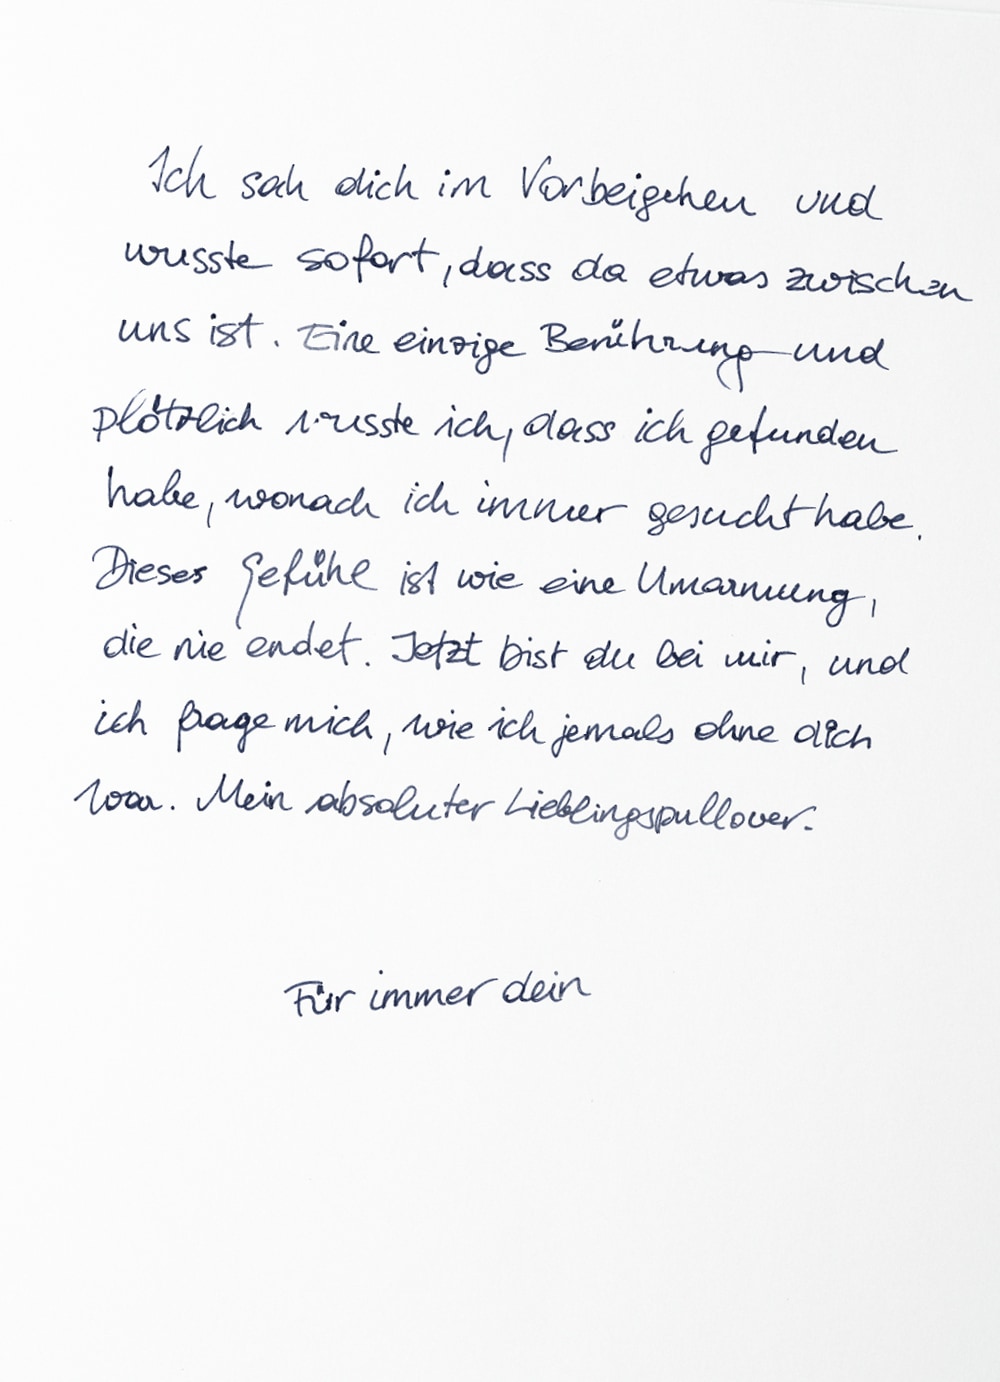 Ich sah dich im Vorbeigehen und
wusste sofort, dass da etwas zwischen
uns ist. Eine einzige Berührung und
plötzlich wusste ich, dass ich gefunden
habe, wonach ich immer gesucht habe.
Dieses Gefühl ist wie eine Umarmung,
die nie endet. Jetzt bist du bei mir, und
ich frage mich, wie ich jemals ohne dich
war. Mein absoluter Lieblingspullover.
Für immer dein